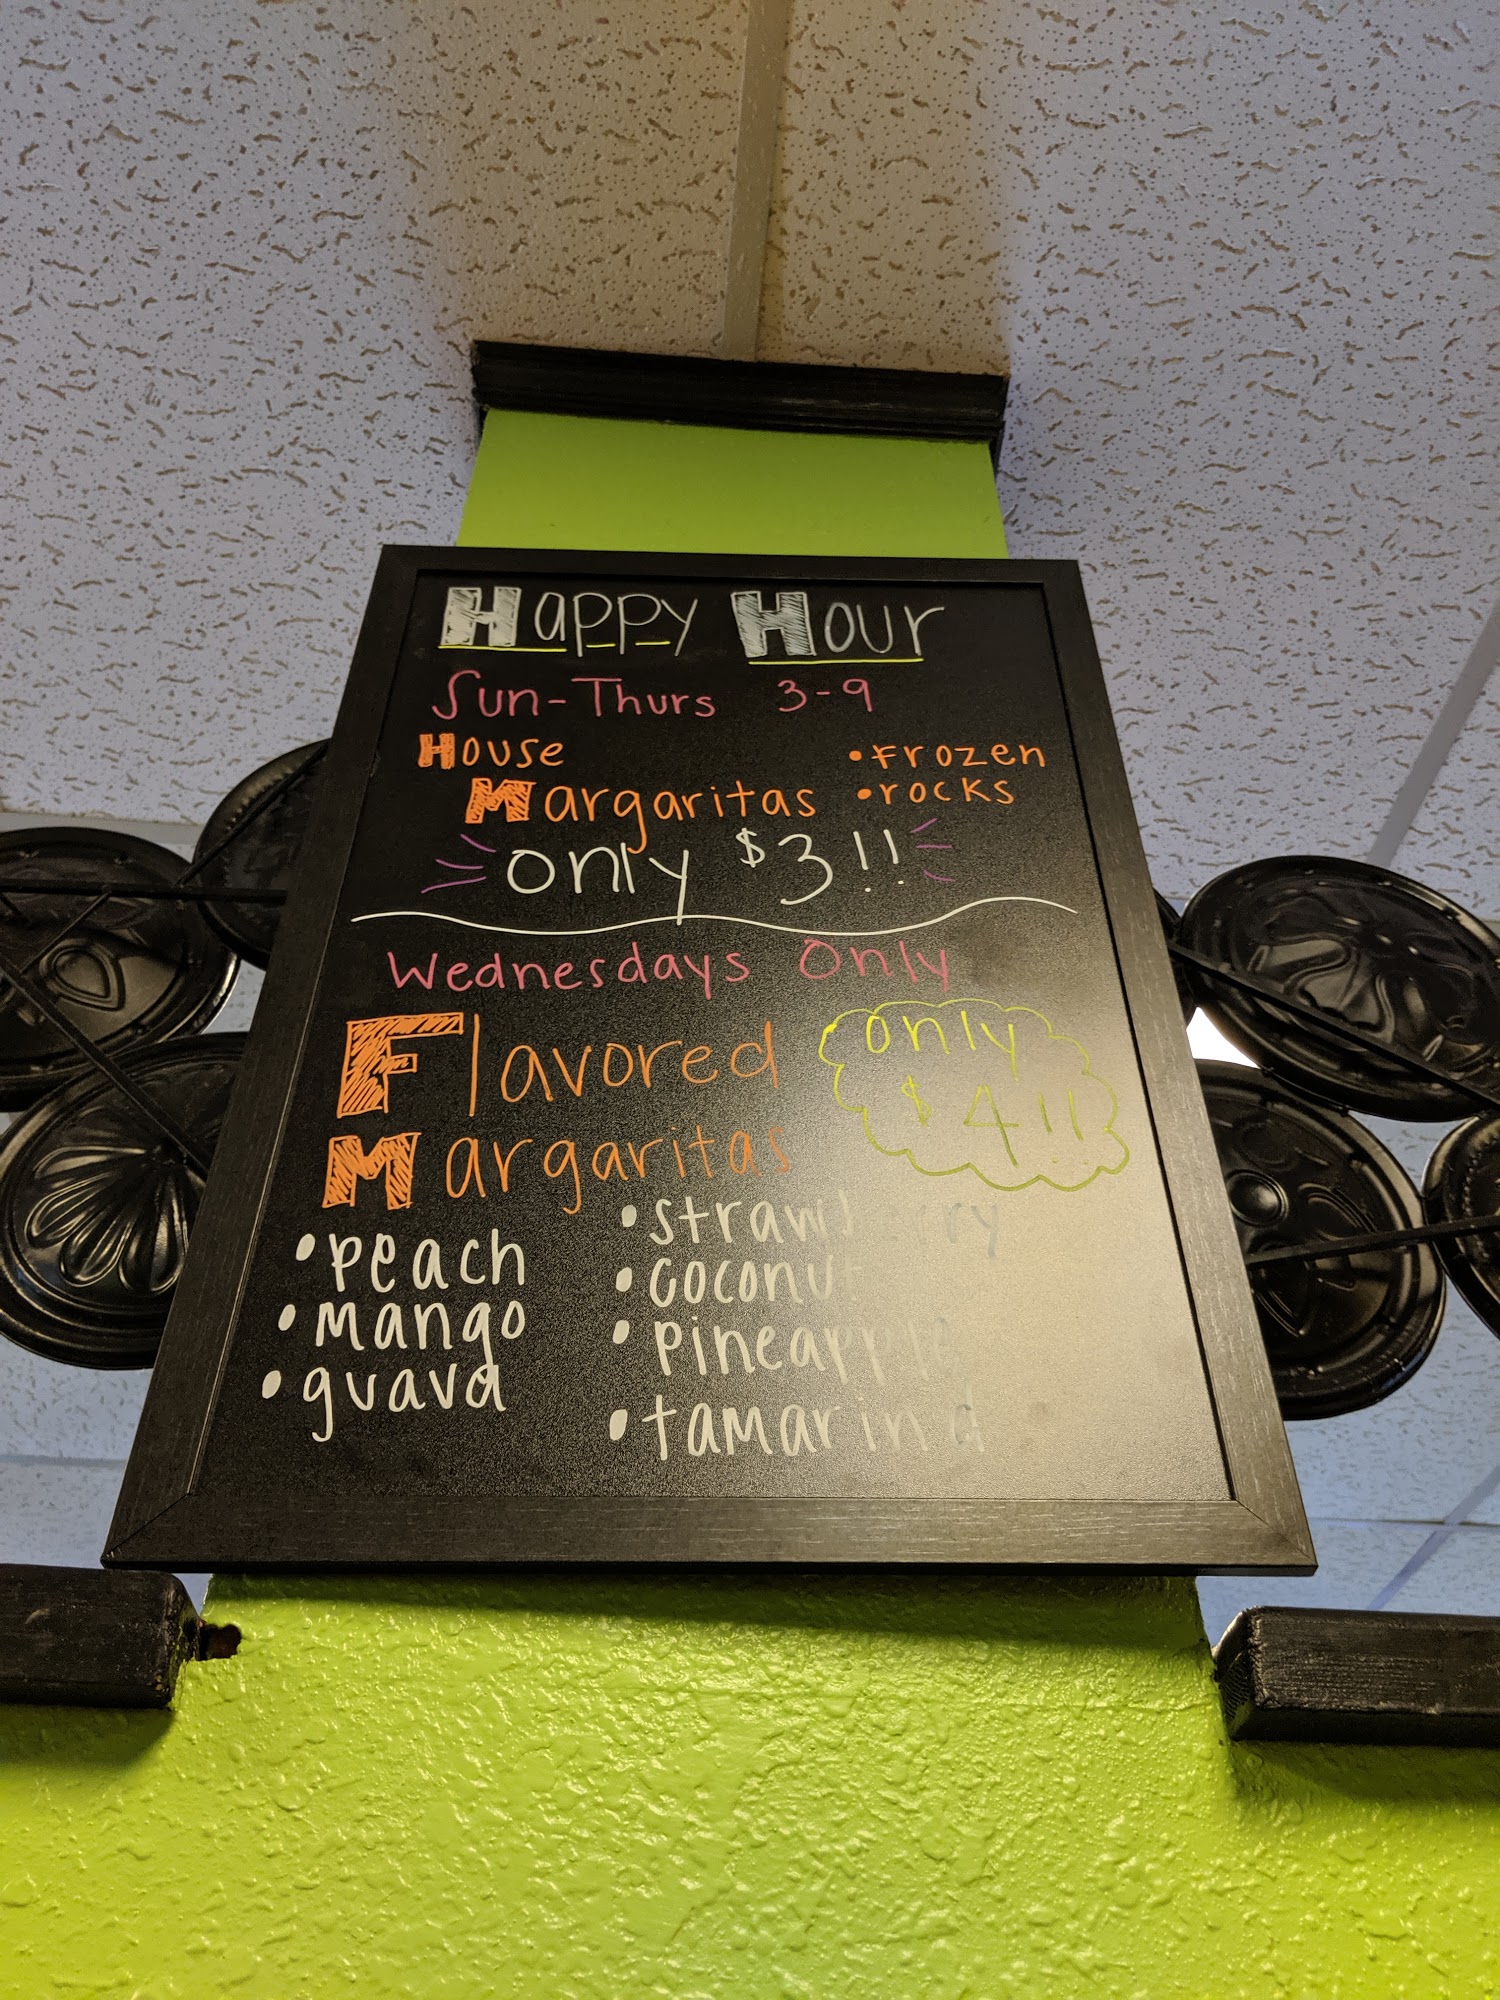 Happy Hour
Sun-Thurs 3-9
House
Margaritas
• Frozen
• rocks
only $3!!
Wednesdays Only
Flavored
Margaritas
only
$4!!
• peach
• Mango
• guava
• strawberry
• coconut
• pineapple
• tamarind